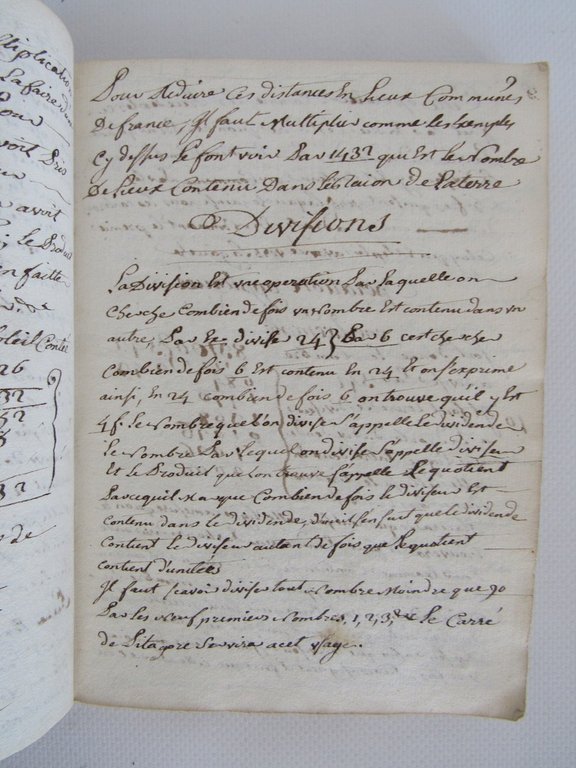 Multiplication
La faire
Pour
avoit
avoit
le Produit
26
32
Pour Reduire Ces distances En Lieux Communes
De france, Il faut Multiplier comme les Exemples
Cy dessus le font voir Par 1432 qui Est le Nombre
De Lieux Contenu Dans le Raion de La terre
Divisions
La Division Est une operation Par Laquelle on
Cherche Combien de fois un Nombre Est contenu dans un
autre, Par Ex.. divise 24 Par 6 c'est cherche
Combien de fois 6 Est contenu En 24 Et on s'exprime
ainsi, En 24 combien de fois 6 on trouve qu'il y Est
4 f. le Nombre que l'on divise s'appelle le dividende
le Nombre Par le quel on divise s'appelle diviseur
Et le Produit que l'on trouve s'appelle le quotient
Parcequil combien de fois le diviseur Est
contenu dans le dividende, d'ou il s'en suit que le dividende
contient le diviseur autant de fois que le quotient
contient d'unités
Il faut scavoir divise tout Nombre Moindre que 90
Par les Neuf premiers Nombres, 1, 2, 3, &c Le Carré
de Pitagore Servira a cet usage.